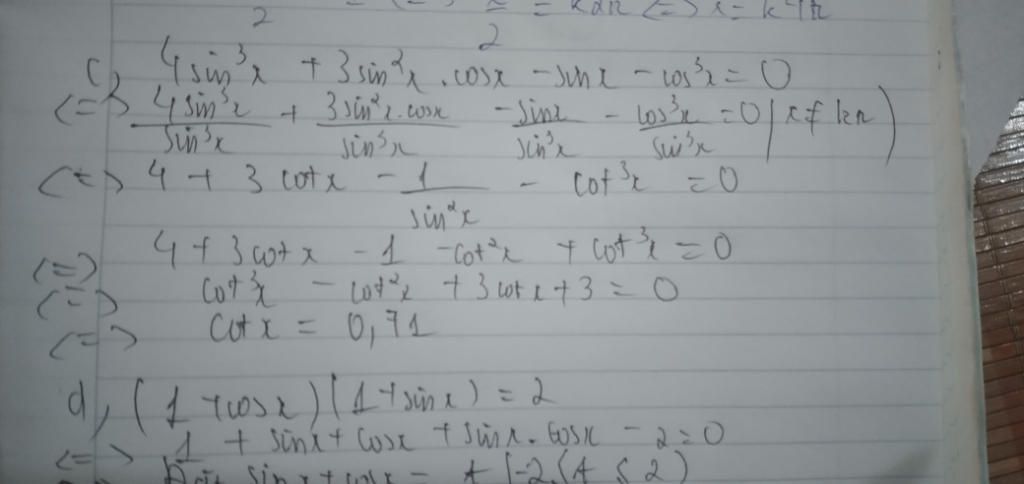 2 = k2π <=> x = k4π
2
c, 4sin³x + 3sin²x.cosx - sinx - cos³x = 0
<=> 4sin³x/sin³x + 3sin²x.cosx/sin³x - sinx/sin³x - cos³x/sin³x = 0 (x ≠ kπ)
<=> 4 + 3cotx - 1/sin²x - cot³x = 0
<=> 4 + 3cotx - 1 - cot²x + cot³x = 0
<=> cot³x - cot²x + 3cotx + 3 = 0
<=> cotx = 0,71
d, (1 + cosx)(1 + sinx) = 2
<=> 1 + sinx + cosx + sinx.cosx - 2 = 0
sinx + cosx =